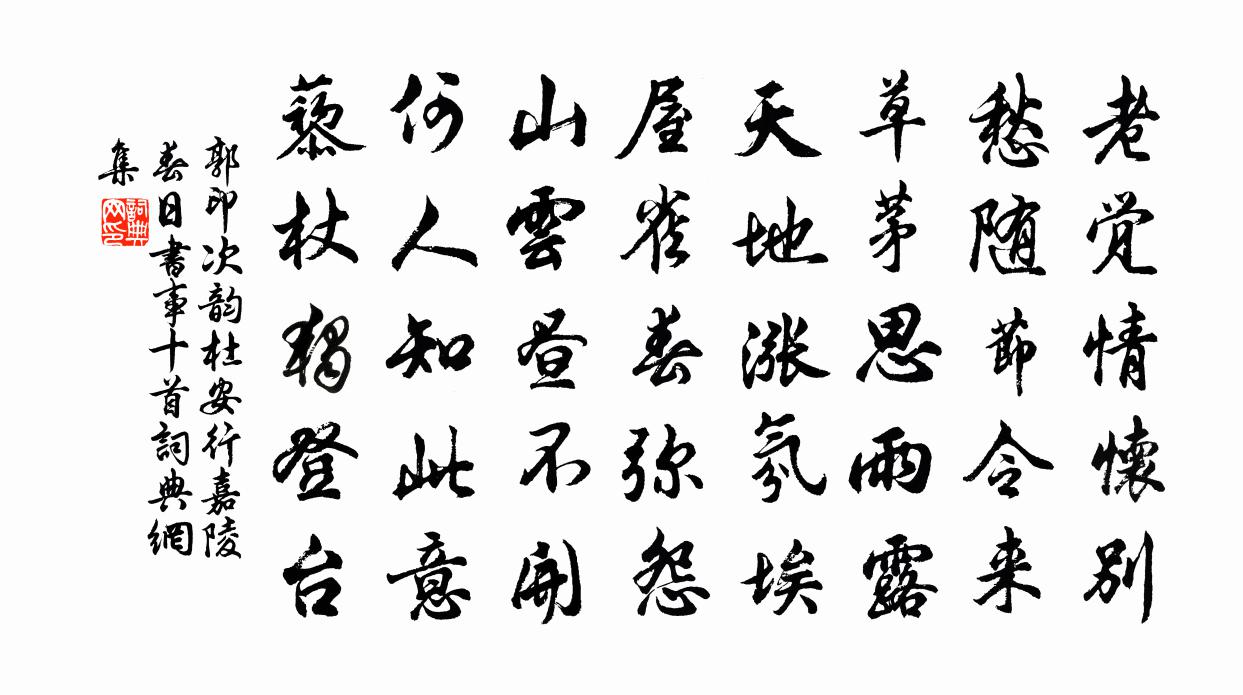 老觉情懷别
愁随節令来
草茅思雨露
天地漲氛埃
屋雀春弥怨
山雲昼不開
何人知此意
藜杖獨登台
郭印次韵杜安行嘉陵
春日書事十首詞典網
集
詞典网印